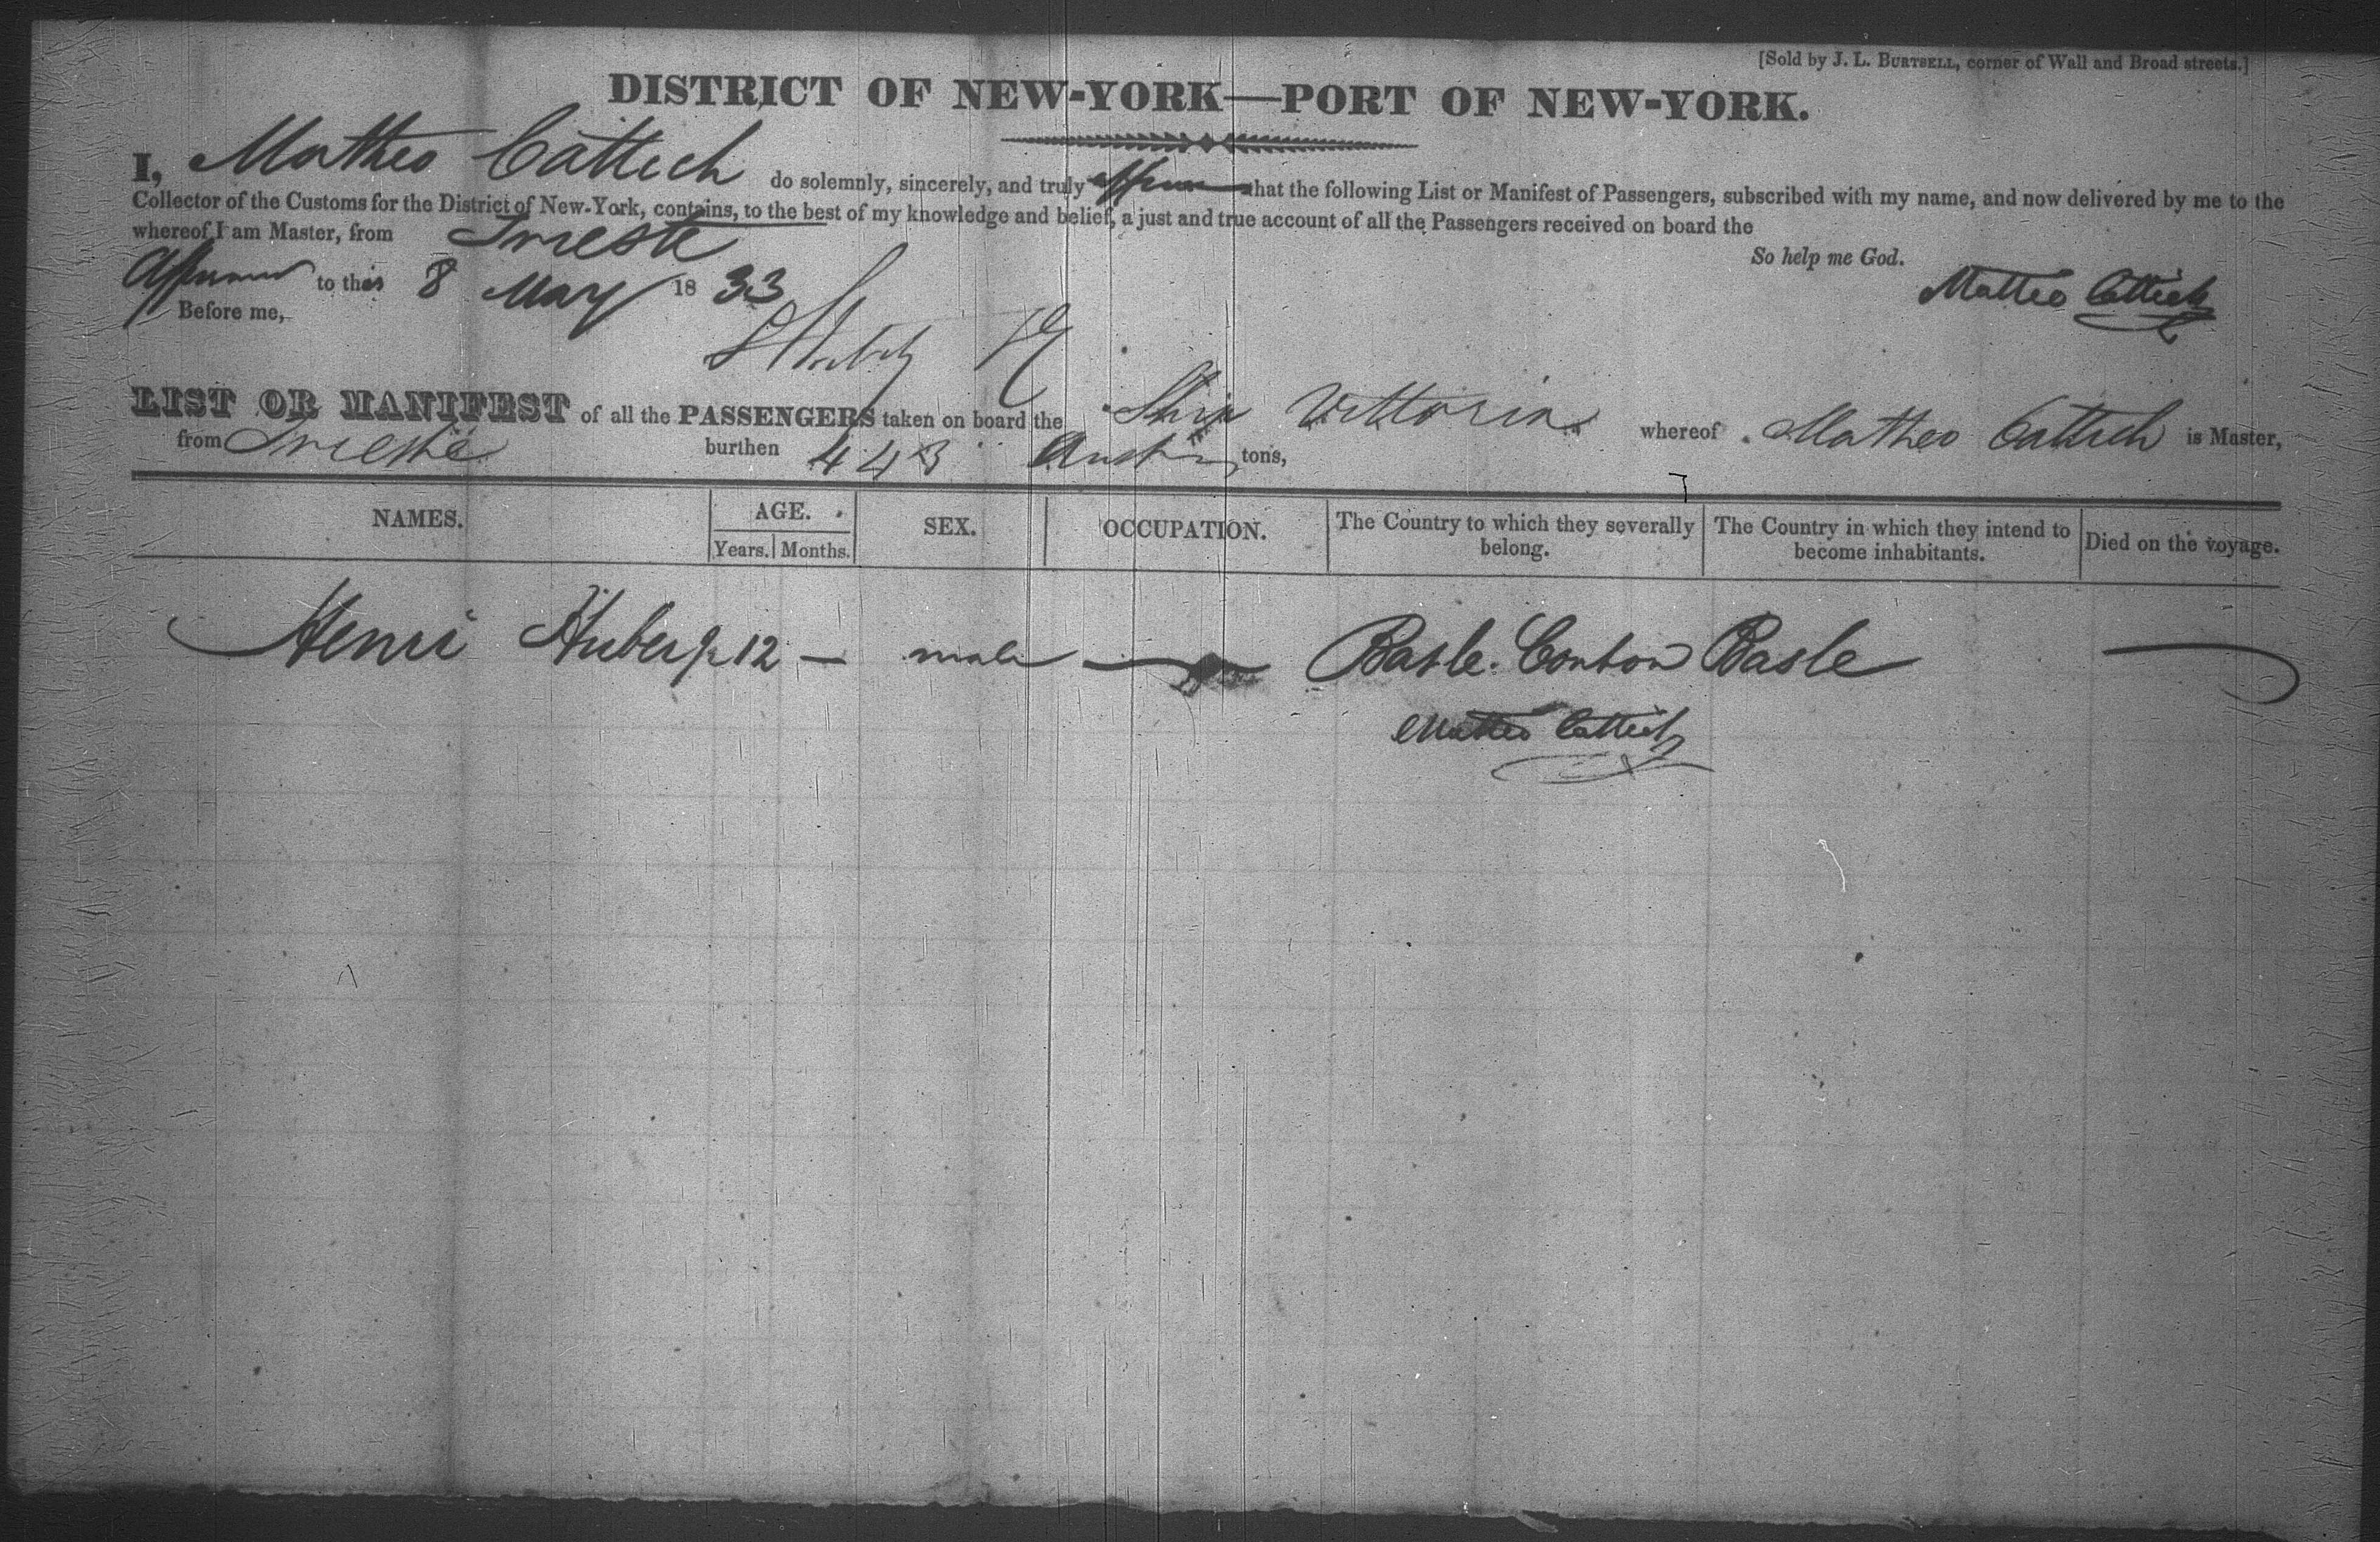 [Sold by J. L. BURTSELL, corner of Wall and Broad streets.]
DISTRICT OF NEW-YORK—PORT OF NEW-YORK.
I, Matheo Cattich do solemnly, sincerely, and truly affirm that the following List or Manifest of Passengers, subscribed with my name, and now delivered by me to the
Collector of the Customs for the District of New-York, contains, to the best of my knowledge and belief, a just and true account of all the Passengers received on board the
whereof I am Master, from Trieste
So help me God.
Affirmed to this 8 May 1833 Matteo Cattich
Before me,
LIST OR MANIFEST of all the PASSENGERS taken on board the Ship Vittoria whereof Matheo Cattich is Master,
from Trieste burthen 443 tons,
NAMES. AGE. SEX. OCCUPATION. The Country to which they severally belong. The Country in which they intend to become inhabitants. Died on the voyage.
Years. Months.
Henri Huber 12 — male — Basle. Conton Basle —
Matteo Cattich